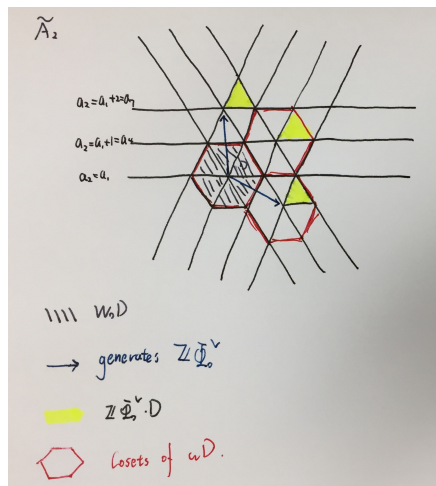 Ã₂
a₂=a₁+2=a₇
a₂=a₁+1=a₄
a₂=a₁
D
W₀D
→ generates ℤΦ₀ᵛ
ℤΦ₀ᵛ·D
Cosets of wD.